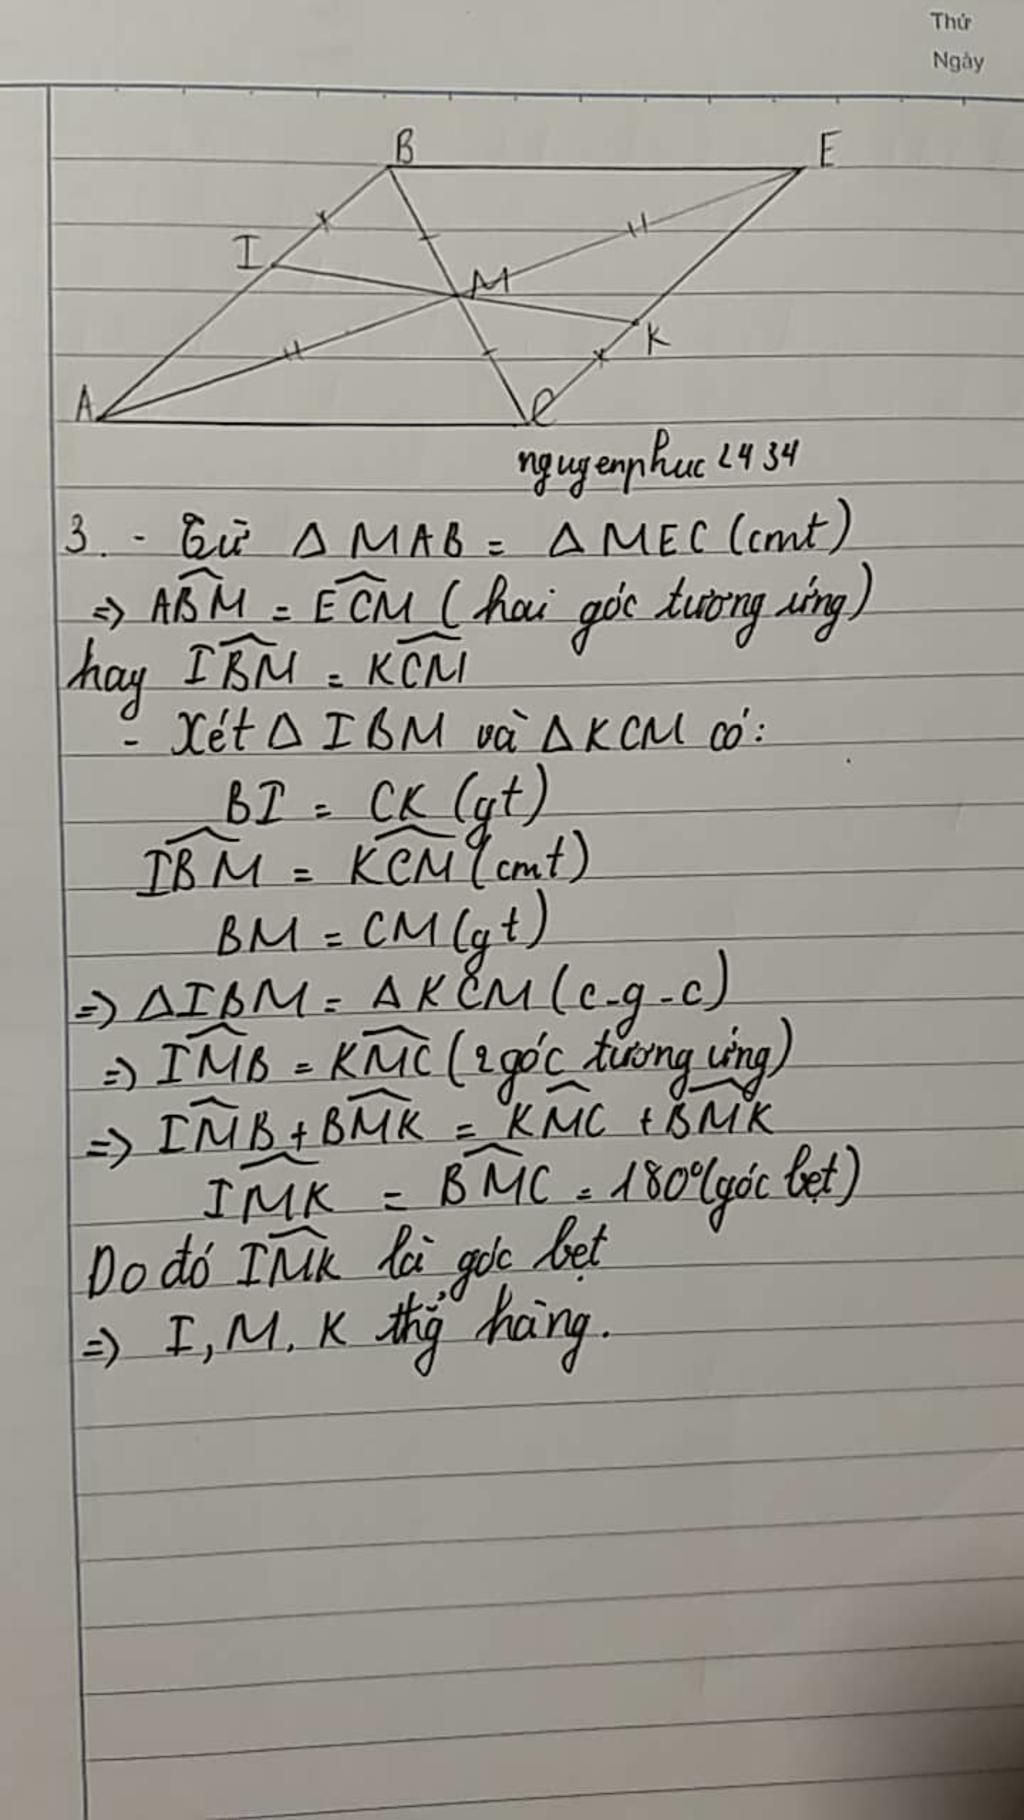 Thứ
Ngày
B
E
I
M
K
A
C
nguyenphuc2434
3. - Từ Δ MAB = Δ MEC (cmt)
=> ABM̂ = ECM̂ (hai góc tương ứng)
hay IBM̂ = KCM̂
- Xét Δ IBM và Δ KCM có:
BI = CK (gt)
IBM̂ = KCM̂ (cmt)
BM = CM (gt)
=> Δ IBM = Δ KCM (c-g-c)
=> IMB̂ = KMĈ (2 góc tương ứng)
=> IMB̂ + BMK̂ = KMĈ + BMK̂
IMK̂ = BMĈ = 180° (góc bẹt)
Do đó IMK̂ là góc bẹt
=> I, M, K thẳg hàng.